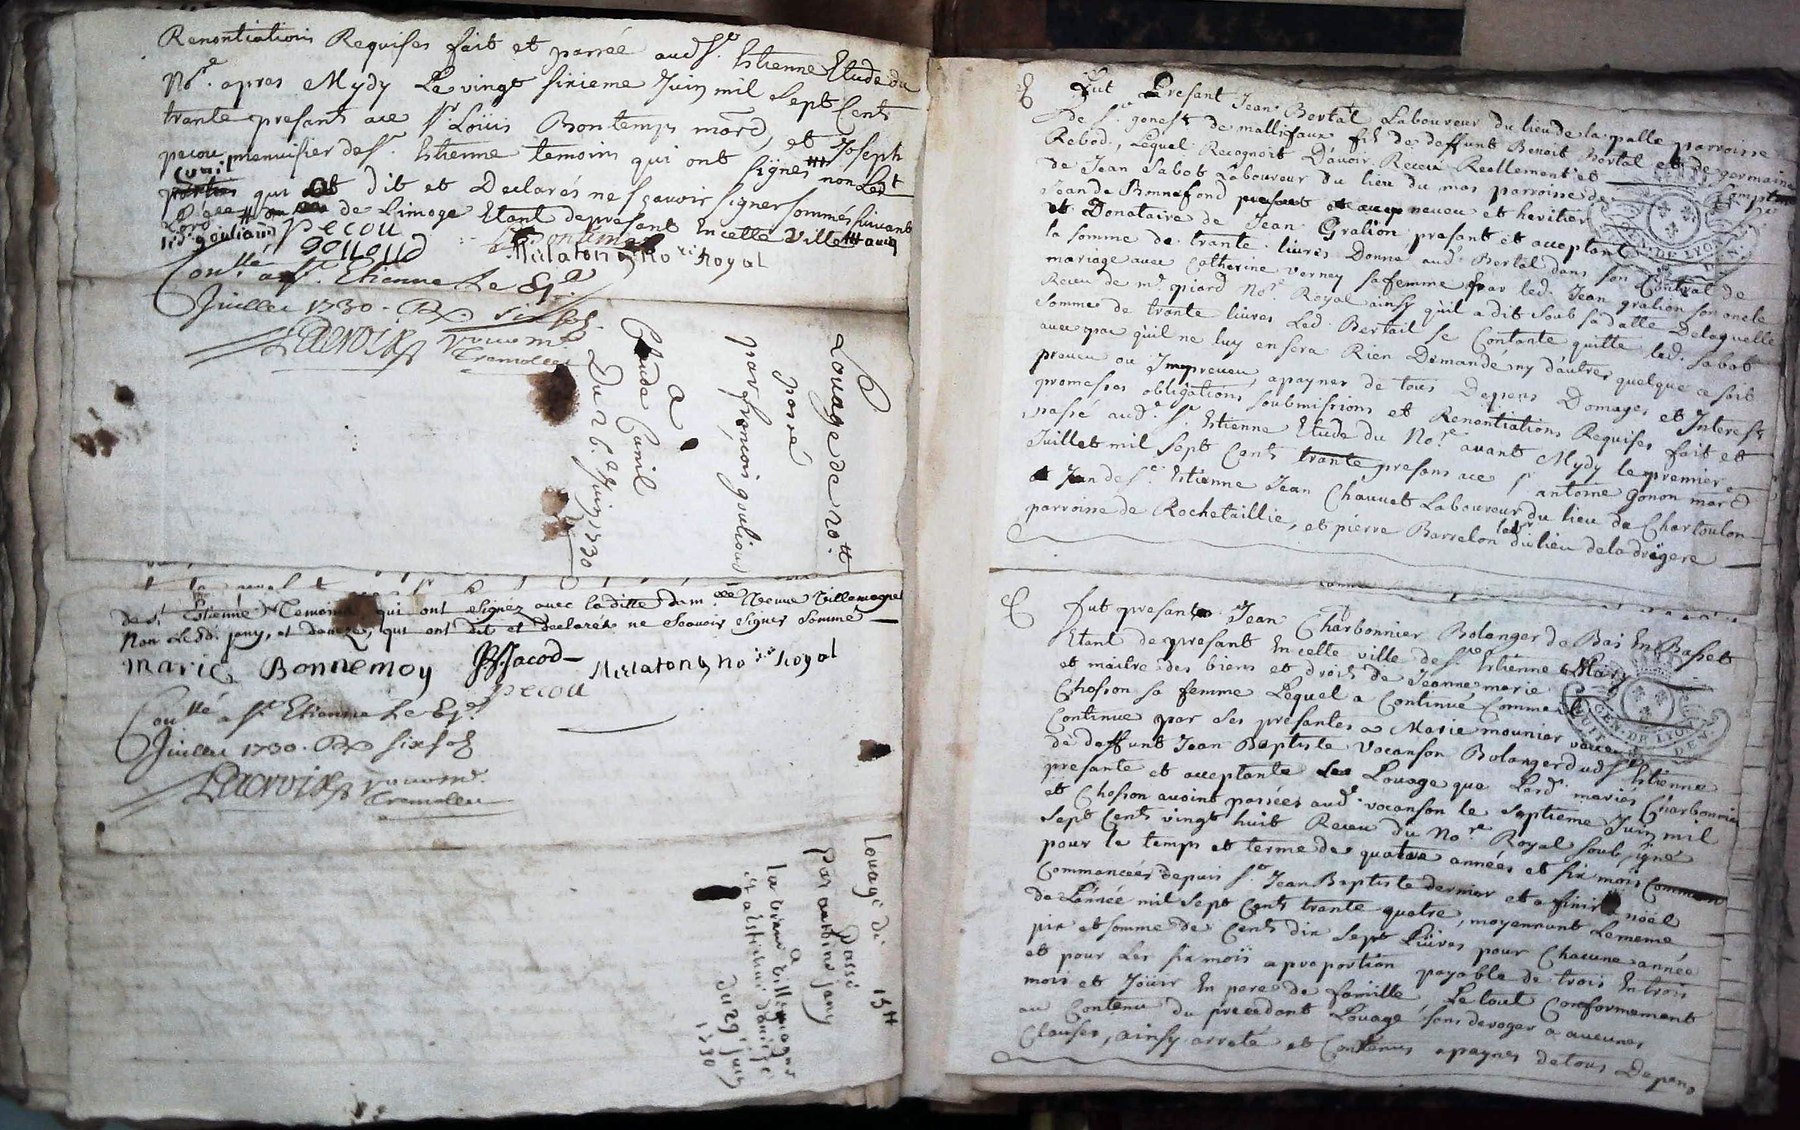 Renontiations Requises fait et passée aud St. Estienne Etude du
Nore. apres Mydy Le vingt sixieme Juin mil sept Cents
trante presants ace Sr Loüis Bontemps mard, et Joseph
pecou menuisier de St. Estienne temoins qui ont signés non Led
Cunil
qui dit et Declarés ne sçavoir signer sommés suivant
de Limoge Etant de present En cette Ville
pecou
gouliaud
Mirlaton No re Royal
Conllé a St. Etienne Le 8e.
Juillet 1730. Rx six sols
Lacroix
Tremolleu
Louage de 20tt.
passé
par françois gouliaud
A
Claude Cunil
Du 26e Juin 1730
de St. Estienne Temoins qui ont signéz avec laditte damelle Veuve Villemagne
Non Led. jany, et qui ont dit et declarés ne sçavoir signer sommé
marie Bonnemoy Jacod Mirlaton No re Royal
pecou
Conllé a St. Etienne Le 8e.
Juillet 1730. Rx six sols
Lacroix
Tremolleu
Louage di 15tt
Passé
Par antoine jany
a
la veuve Villemagne
du 29e juin
1730
Fut Presant Jean Bertal Laboureur du lieu de la palle parroisse
de St. genest de mallifaux fils de deffunt Benoit Bertal et de germaine
Rebod, Lequel Recognoit D'avoir Receu Reellement et Comptant
de Jean Sabot Laboureur du lieu du mas parroisse de
St Jean de Bonnefond neveu et heritier
et Donataire de Jean Gralion presant et acceptant
la somme de trante livres Donne aud. Bertal dans son Contrat de
mariage avec Catherine Verney sa femme par led. Jean gralion son oncle
Receu de me. piard Nore. Royal ainsy qu'il a dit soub sa datte De laquelle
somme de trante livres Led Bertail se Contante quitte led. Sabot
avec pac qu'il ne luy en sera Rien Demandé ny d'autre quelque ce soit
preveu ou Impreveu, a payner de tous Depens Domages et Interests
promesses obligations soubmissions et Renontiations Requises fait et
passé aud. St. Estienne Etude du Nore avant Mydy le premier
Juillet mil sept Cents trante presans ace Sr antoine gonon mard
de St. Estienne Jean Chauvet Laboureur du lieu de Chartoulon
parroisse de Rochetaillie, et pierre Barrelon labr du lieu de la drëgere
fut presant Jean Charbonnier Bolanger de Bas En Basset
Etant de present En cette ville de St. Estienne Mary
et maitre des biens et droits de Jeanne marie
Chosson sa femme Lequel a Continué Comme
Continue par ses présantes a Marie mounier veuve
de deffunt Jean Baptiste Vocanson Bolanger dud St Estienne
presante et acceptante Le Louage que Lesd. mariés Charbonnier
et Chosson avoint passées aud. vocanson le septieme Juin mil
sept Cents vingt huit Receu du Nore Royal soub signé
pour le temps et terme de quatre années et six mois
Commancées depuis St. Jean Baptiste dernier et a finir a noël
de L'année mil sept Cents trante quatre, moyennant Le meme
prix et somme de Cents dix sept Liüvres pour Chacune année
et pour Les six mois a proportion payable de trois En trois
mois et Joüir En pere de famille, Le tout Conformement
au Contenu du précedant Louage sans deroger a aucunes
Clauses, ainsy arreté et Convenus a payner de tous Depens